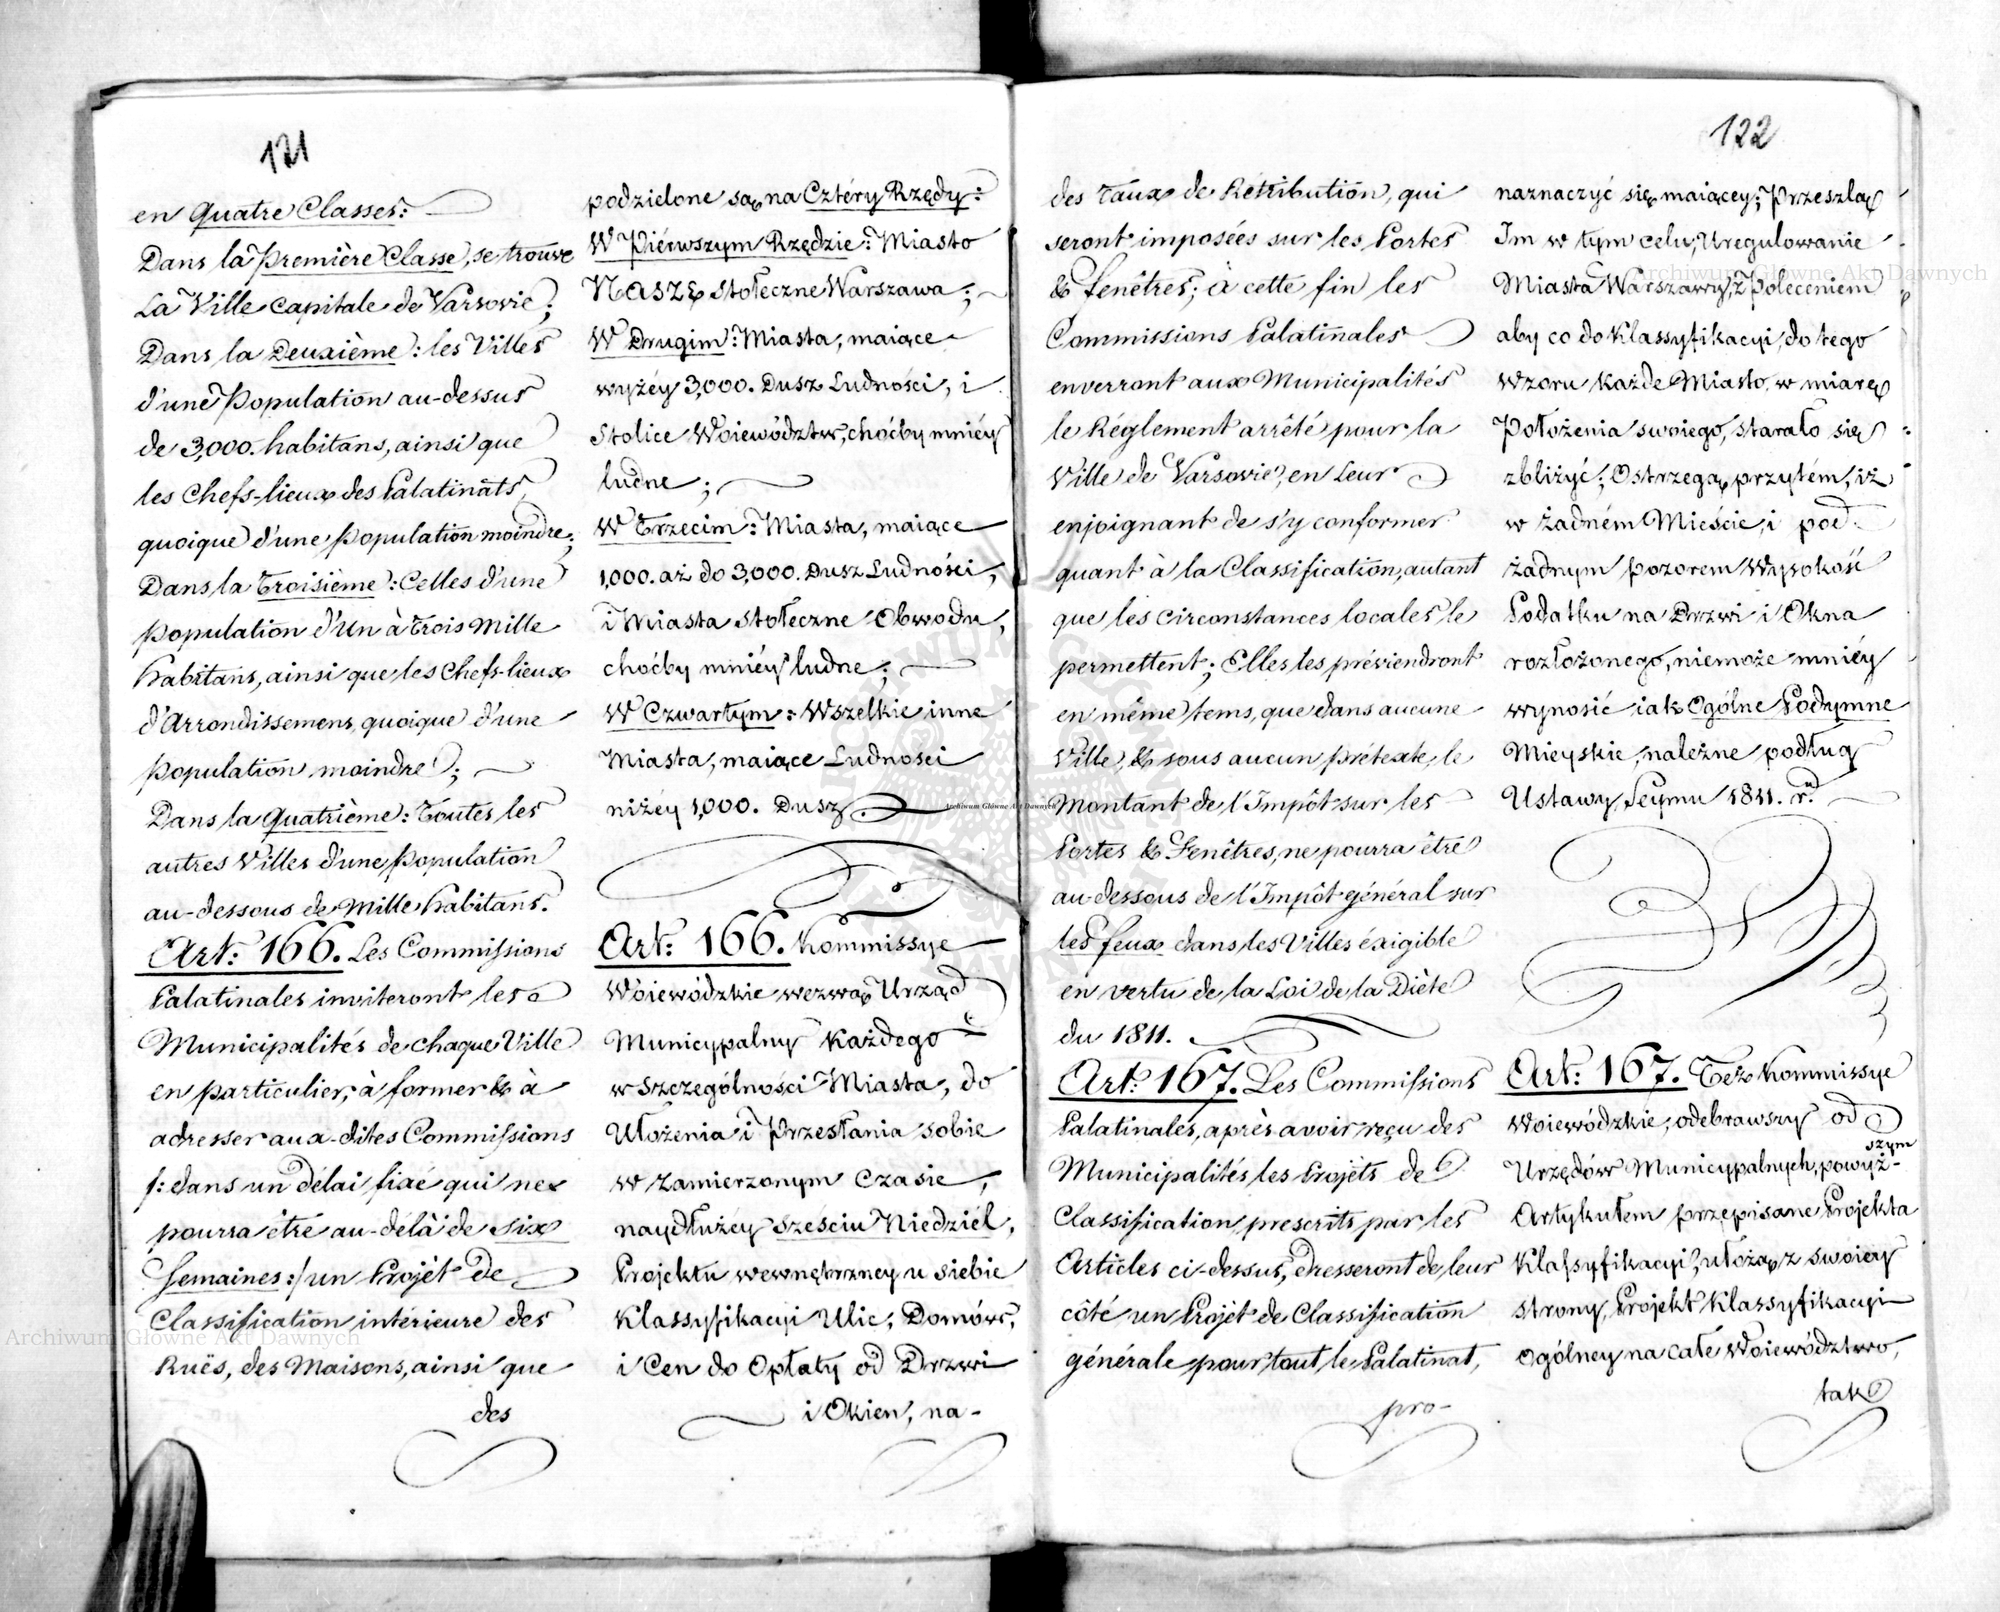 121
en Quatre Classes:
Dans la première Classe, se trouve
La Ville capitale de Varsovie;
Dans la Deuxième: les Villes
d'une Population au-dessus
de 3,000. habitans, ainsi que
les Chefs-lieux des Palatinats,
quoique d'une Population moindre;
Dans la Troisième: Celles d'une
population d'Un à Trois mille
habitans, ainsi que les Chefs-lieux
d'Arrondissemens, quoique d'une
population moindre;
Dans la Quatrième: Toutes les
autres Villes d'une Population
au-dessous de Mille habitans.
Art: 166. Les Commissions
Palatinales inviteront les
Municipalités de chaque Ville
en particulier, à former & à
adresser aux-dites Commissions
/: dans un délai fixé qui ne
pourra être au-délà de six
Semaines :/ un Projèt de
Classification intérieure des
Ruës, des Maisons, ainsi que
des
podzielone są na Cztéry Rzędy:
W Piérwszym Rzędzie: Miasto
Nasze stołeczne Warszawa;
W Drugim: Miasta, maiące
wyżéy 3,000. Dusz Ludności, i
Stolice Woiewództw, choćby mniéy
ludne;
W Trzecim: Miasta, maiące
1,000. aż do 3,000. Dusz Ludności,
i Miasta stołeczne Obwodu,
choćby mniéy ludne;
W Czwartym: Wszelkie inne
Miasta, maiące Ludności
niżéy 1,000. Dusz.
Art: 166. Kommissye
Woiewódzkie wezwą Urząd
Municypalny każdego
w szczególności Miasta, do
Ułożenia i przesłania sobie
w zamierzonym Czasie,
naydłużéy sześciu Niedziél,
Projektu wewnętrzney u siebie
Klassyfikacyi Ulic, Domów,
i Cen do Opłaty od Drzwi
i Okien, na-
122
des Taux de Rétribution, qui
seront imposées sur les Portes
& fenêtres; à cette fin les
Commissions Palatinales
enverront aux Municipalités
le Réglement arrêté pour la
Ville de Varsovie, en Leur
enjoignant de s'y conformer
quant à la Classification, autant
que les circonstances locales le
permettent; Elles les préviendront
en même tems, que dans aucune
Ville, & sous aucun prétexte, le
Montant de l'Impôt sur les
Portes & Fenêtres, ne pourra être
au-dessous de l'Impôt général sur
les feux dans les Villes éxigible
en vertu de la Loi de la Diète
du 1811.
Art: 167. Les Commissions
Palatinales, après avoir reçu des
Municipalités les Projèts de
Classification, prescrits par les
Articles ci-dessus, dresseront de leur
côté un Projèt de Classification
générale pour tout le Palatinat,
pro-
naznaczyć się maiącey; Przeszlą
Im w tym celu, Uregulowanie
Miasta Warszawy, z Poleceniem
aby co do Klassyfikacyi, do tego
Wzoru każde Miasto, w miarę
Położenia swoiego, starało się
zbliżyć; Ostrzegą przytém, iż
w żadném Mieście, i pod
żadnym pozorem Wysokość
Podatku na Drzwi i Okna
rozłożonego, niemoże mniéy
wynosić iak Ogólne Podymne
Mieyskie, należne podług
Ustawy Seymu 1811. r.
Art: 167. Też Kommissye
Woiewódzkie, odebrawszy od
Urzędów Municypalnych, powyż-
szym
Artykułem przepisane Projekta
Klassyfikacyi, ułożą z swoiey
strony, Projekt Klassyfikacyi
Ogólney na całe Woiewództwo,
tak
Archiwum Główne Akt Dawnych
Archiwum Główne Akt Dawnych
Archiwum Główne Akt Dawnych